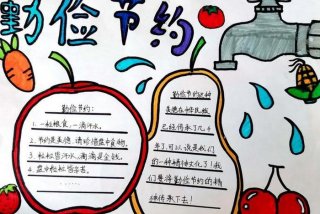 勤俭节约
勤俭节约：
1. 一粒粮食，一滴汗水。
2. 节约是美德，请珍惜盘中食物。
3. 粒粒皆汗水，滴滴是金钱。
4. 盘中粒粒皆辛苦。
勤俭节约这种
美德在中华民族
已经传承了几千
年了，可以说是我们
的一种精神文化了！我
们要将勤俭节约的精
神传承下去！